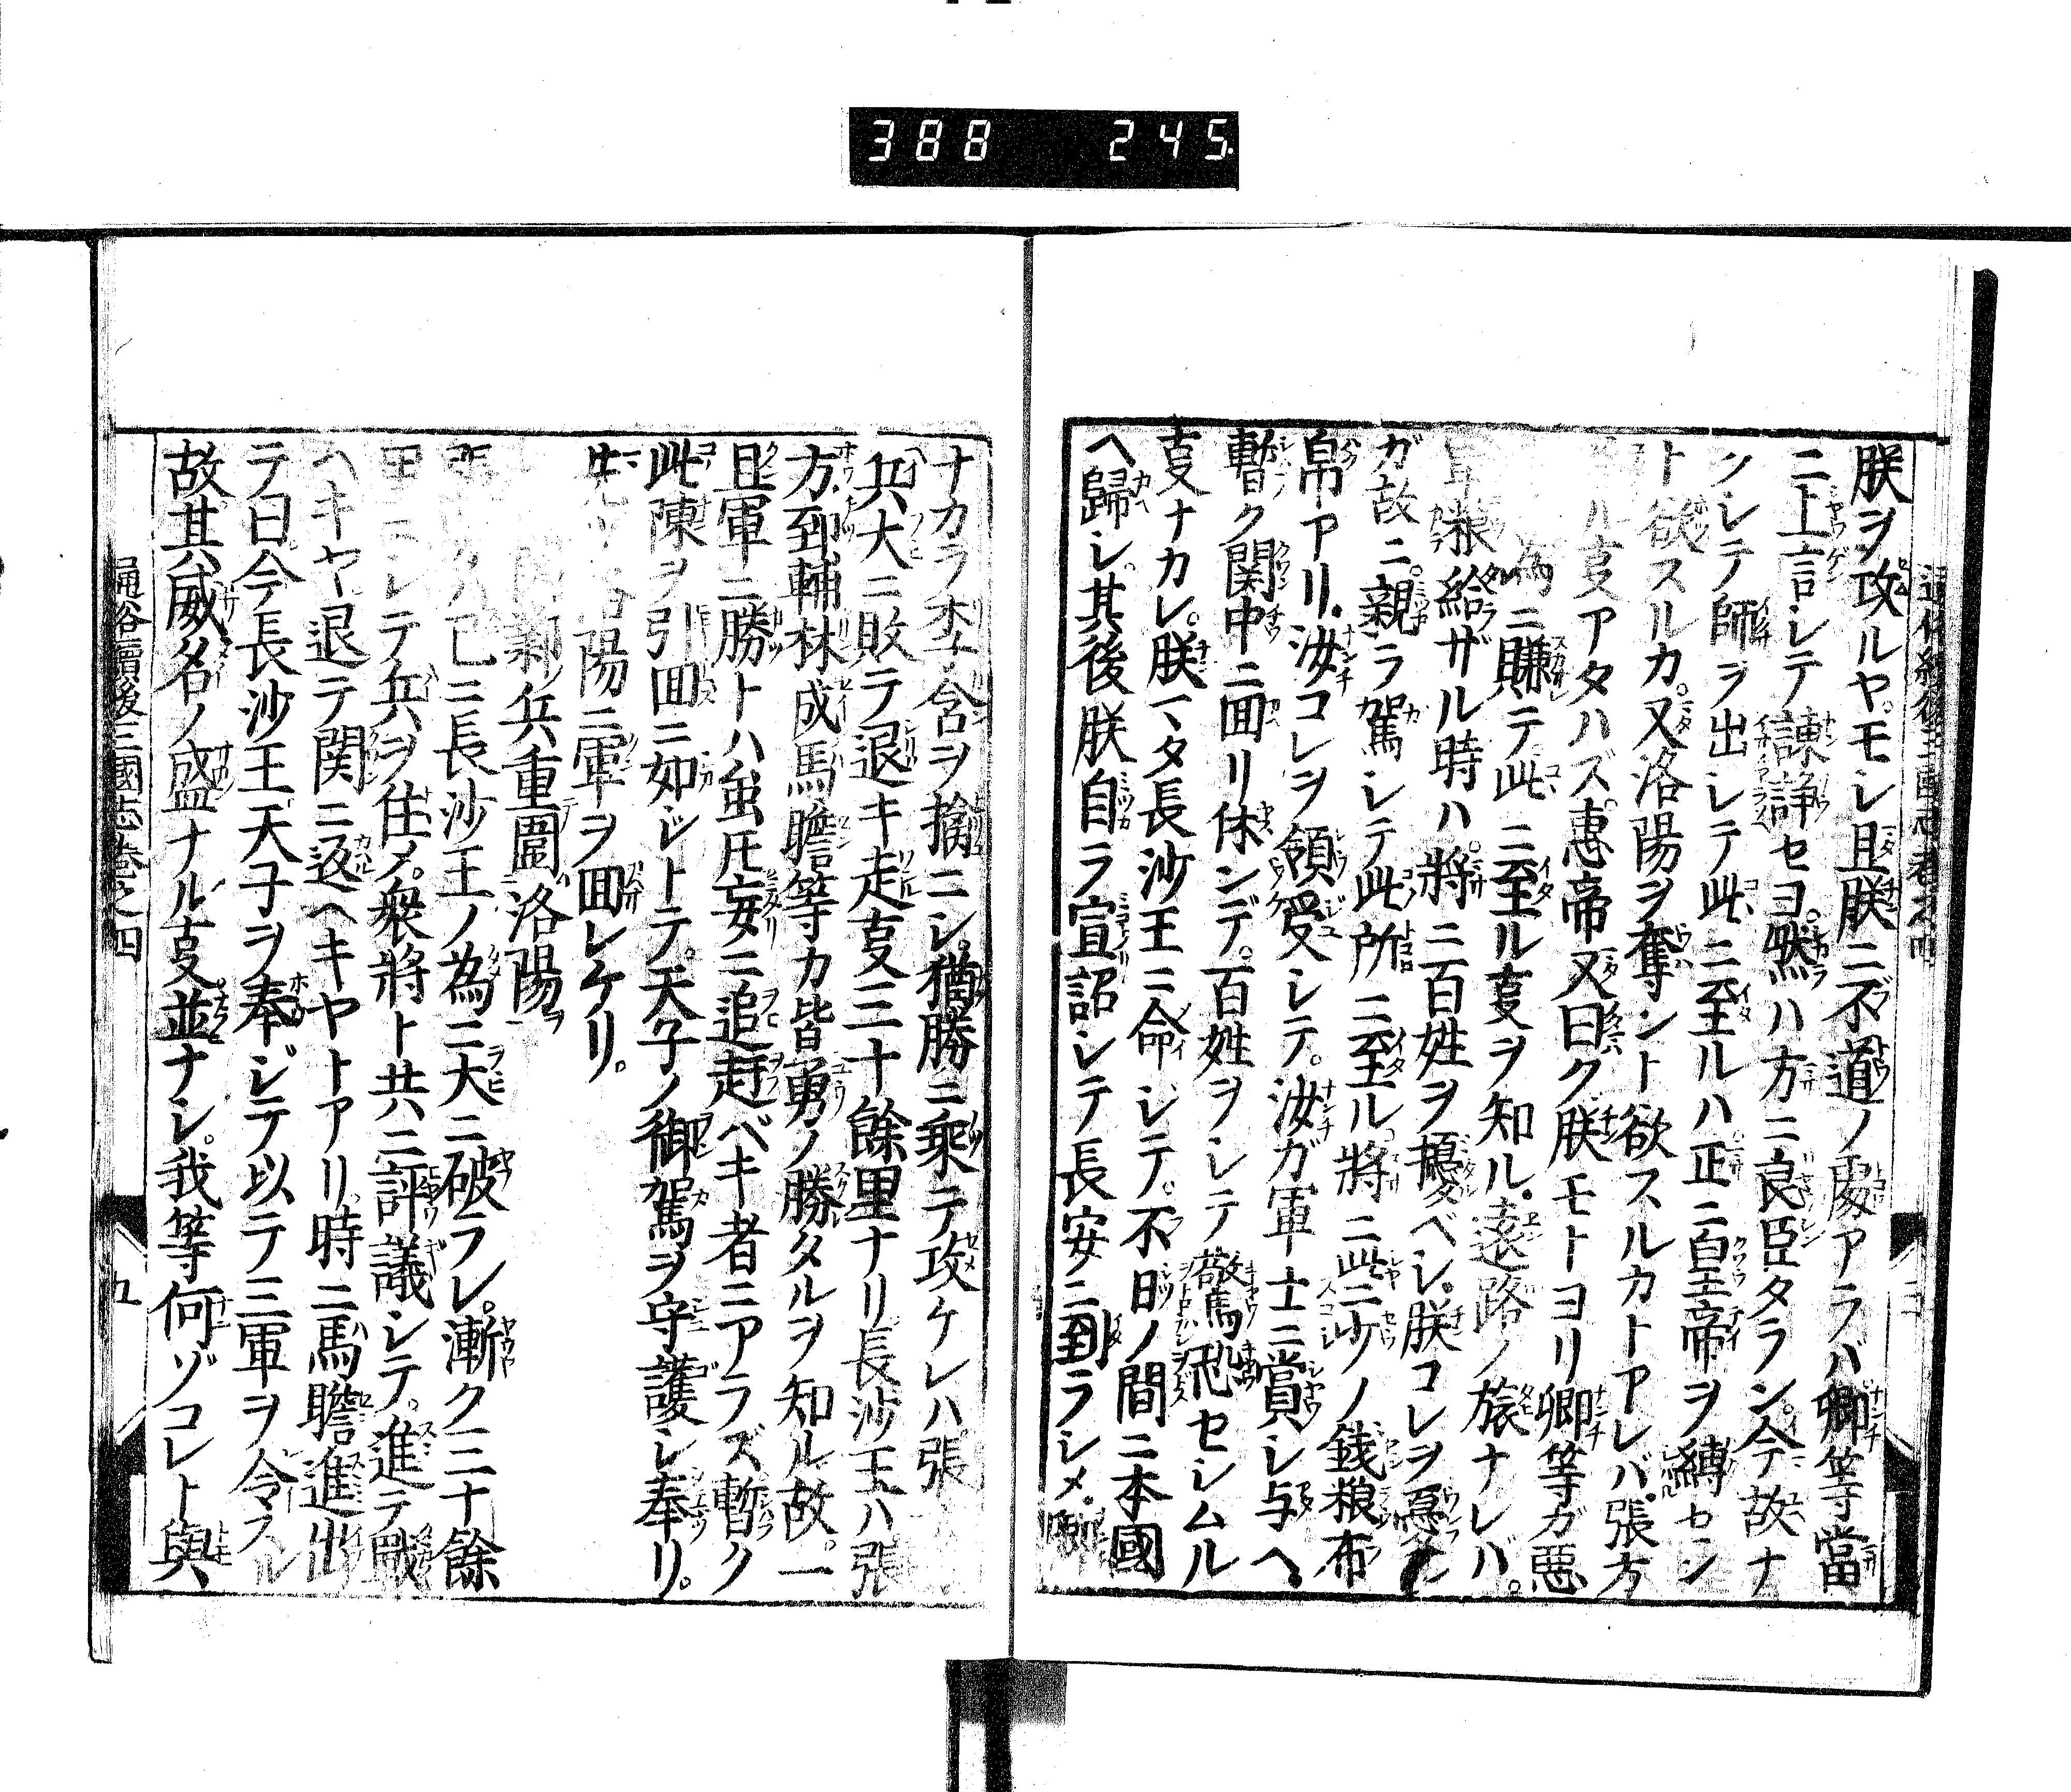 388 245
朕ヲ攻ルヤモシ且朕ニ不道ノ處アラバ卿等當
ニ上言シテ諌諍セヨ然ハ方ニ良臣タラン今故ナ
クシテ師ヲ出シテ此ニ至ルハ正ニ皇帝ヲ縛セン
ト欲スルカ又洛陽ヲ奪ント欲スルカトアレバ張方
ル叓アタハズ惠帝又曰ク朕モトヨリ卿等ガ惡
ニ賺テ此ニ至ル叓ヲ知ル遠路ノ旅ナレバ
粮給ザル時ハ將ニ百姓ヲ擾ベシ朕コレヲ憂ル
ガ故ニ親ラ駕シテ此所ニ至ル將ニ些少ノ銭粮布
帛アリ汝コレヲ領受シテ汝ガ軍士ニ賞シ与ヘ
暫ク関中ニ回リ休ンデ百姓ヲシテ驚恐セシムル
叓ナカレ朕マタ長沙王ニ命ジテ不日ノ間ニ本國
ヘ歸シ其後朕自ラ宣詔シテ長安ニ到ラシメ卿
ナカラ李含ヲ擒ニシ猶勝ニ乘テ攻ケレハ張
兵大ニ敗テ退キ走叓三十餘里ナリ長沙王ハ張
方郅輔林成馬瞻等カ皆勇ノ勝タルヲ知ル故一
且軍ニ勝トハ虽圧妄ニ追赶ベキ者ニアラズ暫ク
此陳ヲ引回ニ如ジトテ天子ノ御駕ヲ守護シ奉リ
先洛陽ニ軍ヲ回シケリ
兵重圍洛陽
張方ハ已ニ長沙王ノ為ニ大ニ破ラレ漸ク三十餘
里ニシテ兵ヲ住メ衆將ト共ニ評議シテ進テ戰
ヘキヤ退テ関ニ返ヘキヤトアリ時ニ馬瞻進出
テ曰今長沙王天子ヲ奉ジテ以テ三軍ヲ令スル
故其威名ノ盛ナル叓並ナシ我等何ゾコレト與
通俗續後三國志巻之四
九